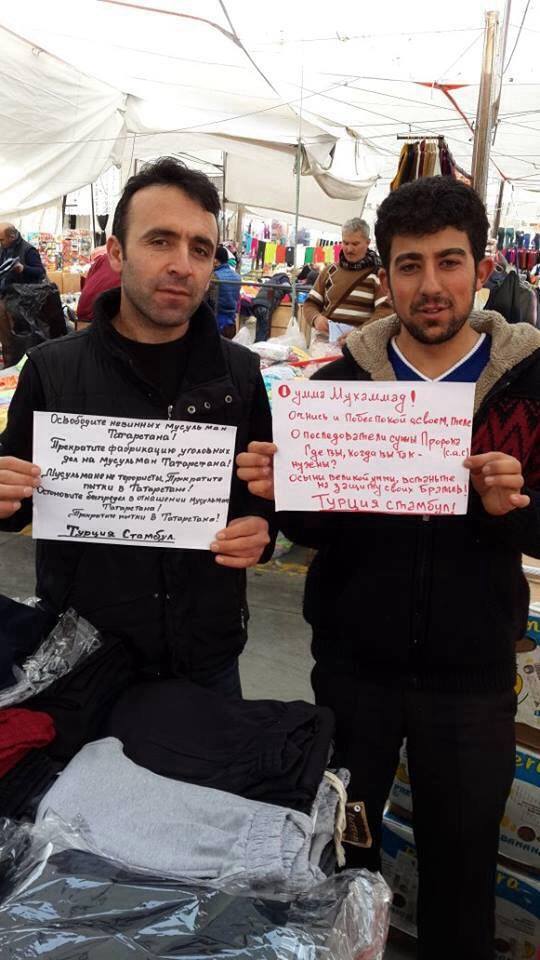 Освободите невинных мусульман
Татарстана!
Прекратите фабрикацию уголовных
дел на мусульман Татарстана!
Мусульмане не терористы, Прекратите
пытки в Татарстане!
Остановите беспредел в отношении мусульман
Татарстана!
Прекратите пытки в Татарстане!
Турция Стамбул
О умма Мухаммад!
Очнись и побеспокой
О последователи сунны Пророка
Где вы, когда вы так- (с.а.с)
нужены?
Осыны великой уммы, встаньте
на защиту своих Братьев!
Турция Стамбул!